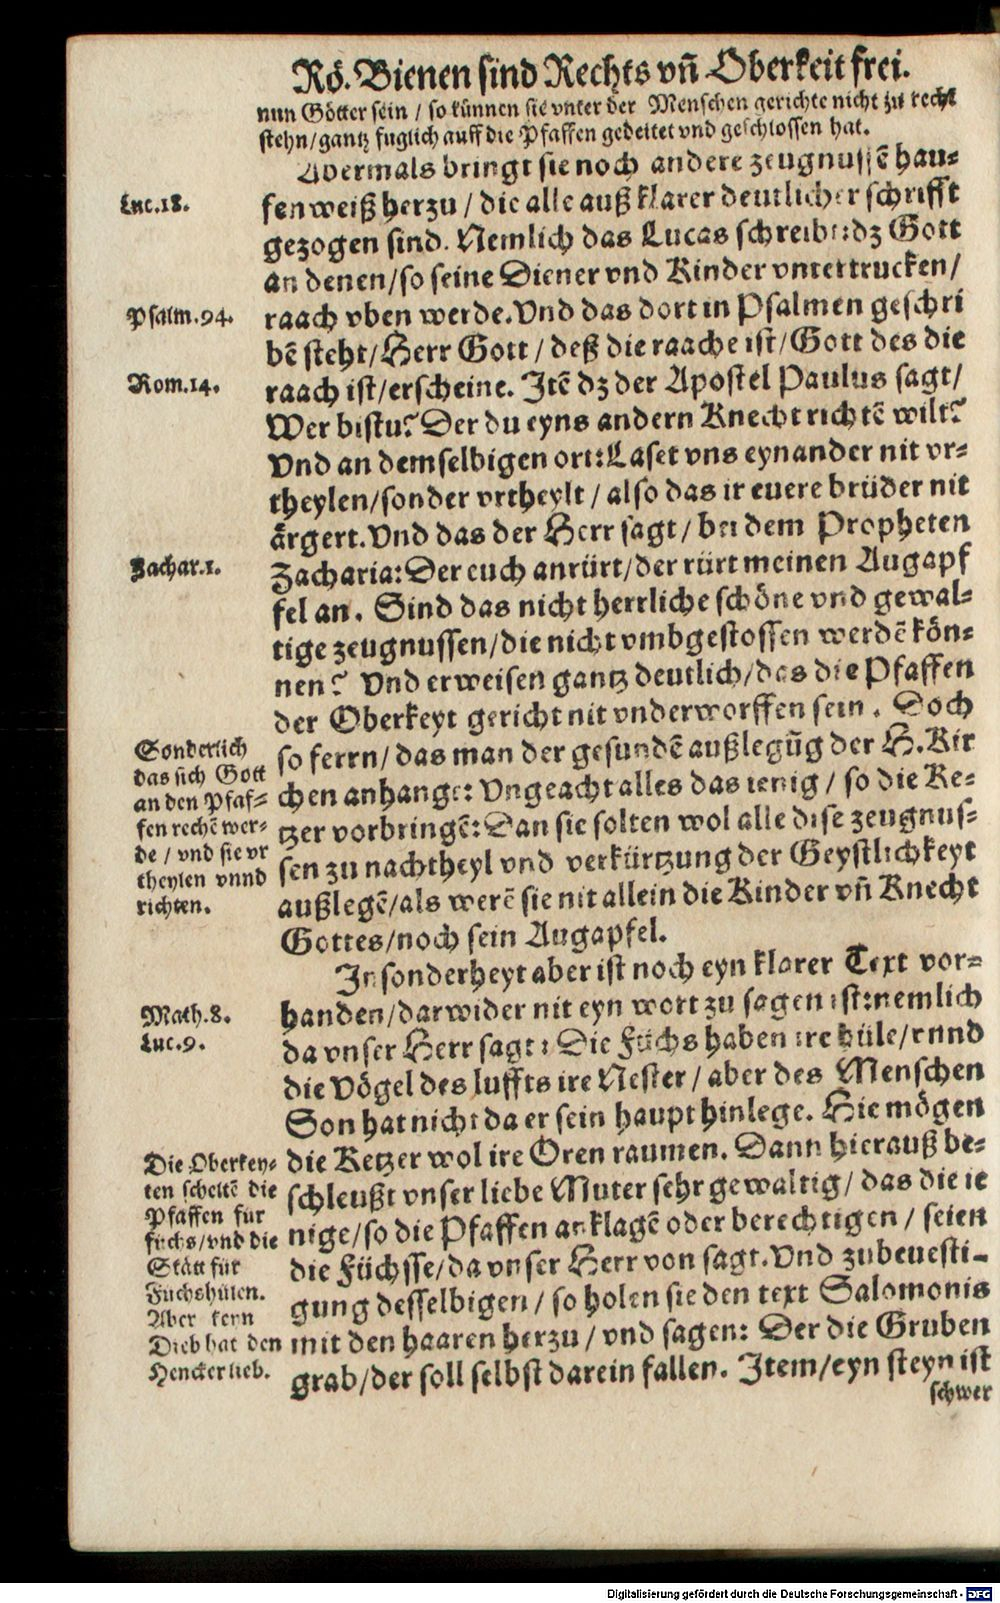 Rö. Bienen sind Rechts vñ Oberkeit frei.
nun Götter sein / so künnen sie vnter der Menschen gerichte nicht zu recht
stehn/gantz fuglich auff die Pfaffen gedeitet vnd geschlossen hat.
Abermals bringt sie noch andere zeugnussẽ hau-
Luc.18.
fenweiß herzu / die alle auß klarer deutlicher schrifft
gezogen sind. Nemlich das Lucas schreibt:dz Gott
an denen/so seine Diener vnd Kinder vntertrucken/
Psalm.94.
raach vben werde. Vnd das dort in Psalmen geschri
bẽ steht/Herr Gott / deß die raache ist/Gott des die
Rom.14.
raach ist/erscheine. Itẽ dz der Apostel Paulus sagt/
Wer bistu? Der du eyns andern Knecht richtẽ wilt?
Vnd an demselbigen ort:Laset vns eynander nit vr-
theylen/sonder vrtheylt / also das ir euere brüder nit
ärgert. Vnd das der Herr sagt / bei dem Propheten
Zachar.1.
Zacharia:Der euch anrürt/der rürt meinen Augapf
fel an. Sind das nicht herrliche schöne vnd gewal-
tige zeugnussen/die nicht vmbgestossen werdẽ kön-
nen? Vnd erweisen gantz deutlich/das die Pfaffen
der Oberkeyt gericht nit vnderworffen sein. Doch
Sonderlich
das sich Gott
an den Pfaf-
fen rechẽ wer-
de / vnd sie vr
theylen vnnd
richten.
so ferrn/das man der gesundẽ außlegũg der H.Kir
chen anhange: Vngeacht alles das ienig / so die Ke-
tzer vorbringẽ:Dan sie solten wol alle dise zeugnus-
sen zu nachtheyl vnd verkürtzung der Geystlichkeyt
außlegẽ/als werẽ sie nit allein die Kinder vñ Knecht
Gottes/noch sein Augapfel.
In sonderheyt aber ist noch eyn klarer Text vor-
Math.8.
Luc.9.
handen/darwider nit eyn wort zu sagen ist:nemlich
da vnser Herr sagt: Die Füchs haben ire hüle/vnnd
die Vögel des luffts ire Nester / aber des Menschen
Son hat nicht da er sein haupt hinlege. Hie mögen
Die Oberkey-
ten scheltẽ die
Pfaffen für
füchs/vnd die
Stätt für
Fuchshülen.
Aber keyn
Dieb hat den
Hencker lieb.
die Ketzer wol ire Oren raumen. Dann hierauß be-
schleußt vnser liebe Muter sehr gewaltig/ das die ie
nige/so die Pfaffen anklagẽ oder berechtigen / seien
die Füchsse/da vnser Herr von sagt. Vnd zubeuesti-
gung desselbigen / so holen sie den text Salomonis
mit den haaren herzu / vnd sagen: Der die Gruben
grab/der soll selbst darein fallen. Item/eyn steyn ist
schwer
Digitalisierung gefördert durch die Deutsche Forschungsgemeinschaft - DFG